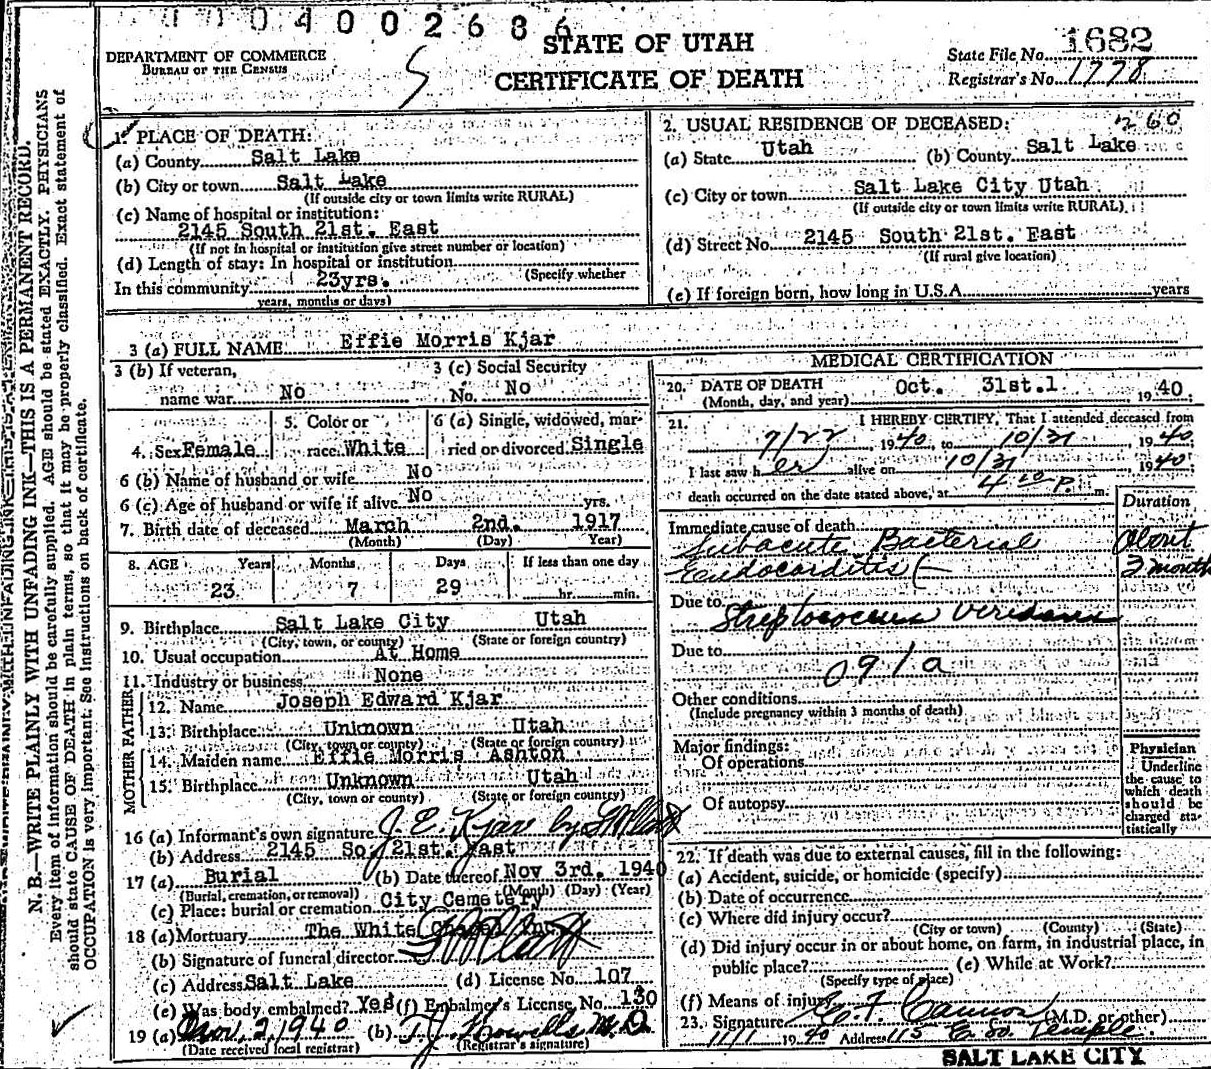 04002686
STATE OF UTAH
CERTIFICATE OF DEATH
DEPARTMENT OF COMMERCE
BUREAU OF THE CENSUS
State File No. 1682
Registrar's No. 1778
N. B.—WRITE PLAINLY WITH UNFADING INK—THIS IS A PERMANENT RECORD.
Every item of information should be carefully supplied. AGE should be stated EXACTLY. PHYSICIANS
should state CAUSE OF DEATH in plain terms, so that it may be properly classified. Exact statement of
OCCUPATION is very important. See instructions on back of certificate.
1. PLACE OF DEATH:
(a) County Salt Lake
(b) City or town Salt Lake
(If outside city or town limits write RURAL)
(c) Name of hospital or institution:
2145 South 21st. East
(If not in hospital or institution give street number or location)
(d) Length of stay: In hospital or institution
(Specify whether
In this community 23yrs.
years, months or days)
2. USUAL RESIDENCE OF DECEASED: 260
(a) State Utah (b) County Salt Lake
(c) City or town Salt Lake City Utah
(If outside city or town limits write RURAL)
(d) Street No. 2145 South 21st. East
(If rural give location)
(e) If foreign born, how long in U.S.A. years
3 (a) FULL NAME Effie Morris Kjar
3 (b) If veteran,
name war No
3 (c) Social Security
No. No
4. Sex Female
5. Color or
race White
6 (a) Single, widowed, mar-
ried or divorced Single
6 (b) Name of husband or wife No
6 (c) Age of husband or wife if alive No yrs.
7. Birth date of deceased March 2nd. 1917
(Month) (Day) Year)
8. AGE Years Months Days If less than one day
23 7 29 hr. min.
9. Birthplace Salt Lake City Utah
(City, town, or county) (State or foreign country)
10. Usual occupation At Home
11. Industry or business None
FATHER
12. Name Joseph Edward Kjar
13. Birthplace Unknown Utah
(City, town or county) (State or foreign country)
MOTHER
14. Maiden name Effie Morris Ashton
15. Birthplace Unknown Utah
(City, town or county) (State or foreign country)
16 (a) Informant's own signature J. E. Kjar by
(b) Address 2145 So. 21st. East
17 (a) Burial (b) Date thereof Nov 3rd. 1940
(Burial, cremation, or removal) (Month) (Day) (Year)
(c) Place: burial or cremation City Cemetery
18 (a) Mortuary The White Chapel Inc.
(b) Signature of funeral director
(c) Address Salt Lake (d) License No. 107
(e) Was body embalmed? Yes (f) Embalmer's License No. 130
19 (a) Nov. 2, 1940 (b)
(Date received local registrar) (Registrar's signature)
MEDICAL CERTIFICATION
20. DATE OF DEATH Oct. 31st.1 1940
(Month, day, and year)
21. I HEREBY CERTIFY, That I attended deceased from
7/22, 1940, to 10/31, 1940
I last saw her alive on 10/31, 1940
death occurred on the date stated above, at 4 10 P. m.
Duration
Immediate cause of death
Subacute Bacterial about
Endocarditis 3 months
Due to Streptococcus Viridans
Due to
091a
Other conditions
(Include pregnancy within 3 months of death)
Major findings:
Of operations
Of autopsy
Physician
Underline
the cause to
which death
should be
charged sta-
tistically
22. If death was due to external causes, fill in the following:
(a) Accident, suicide, or homicide (specify)
(b) Date of occurrence
(c) Where did injury occur?
(City or town) (County) (State)
(d) Did injury occur in or about home, on farm, in industrial place, in
public place? (e) While at Work?
(Specify type of place)
(f) Means of injury
23. Signature E. F. Cannon (M.D. or other)
11/1 1940 Address 115 E. So. Temple.
SALT LAKE CITY